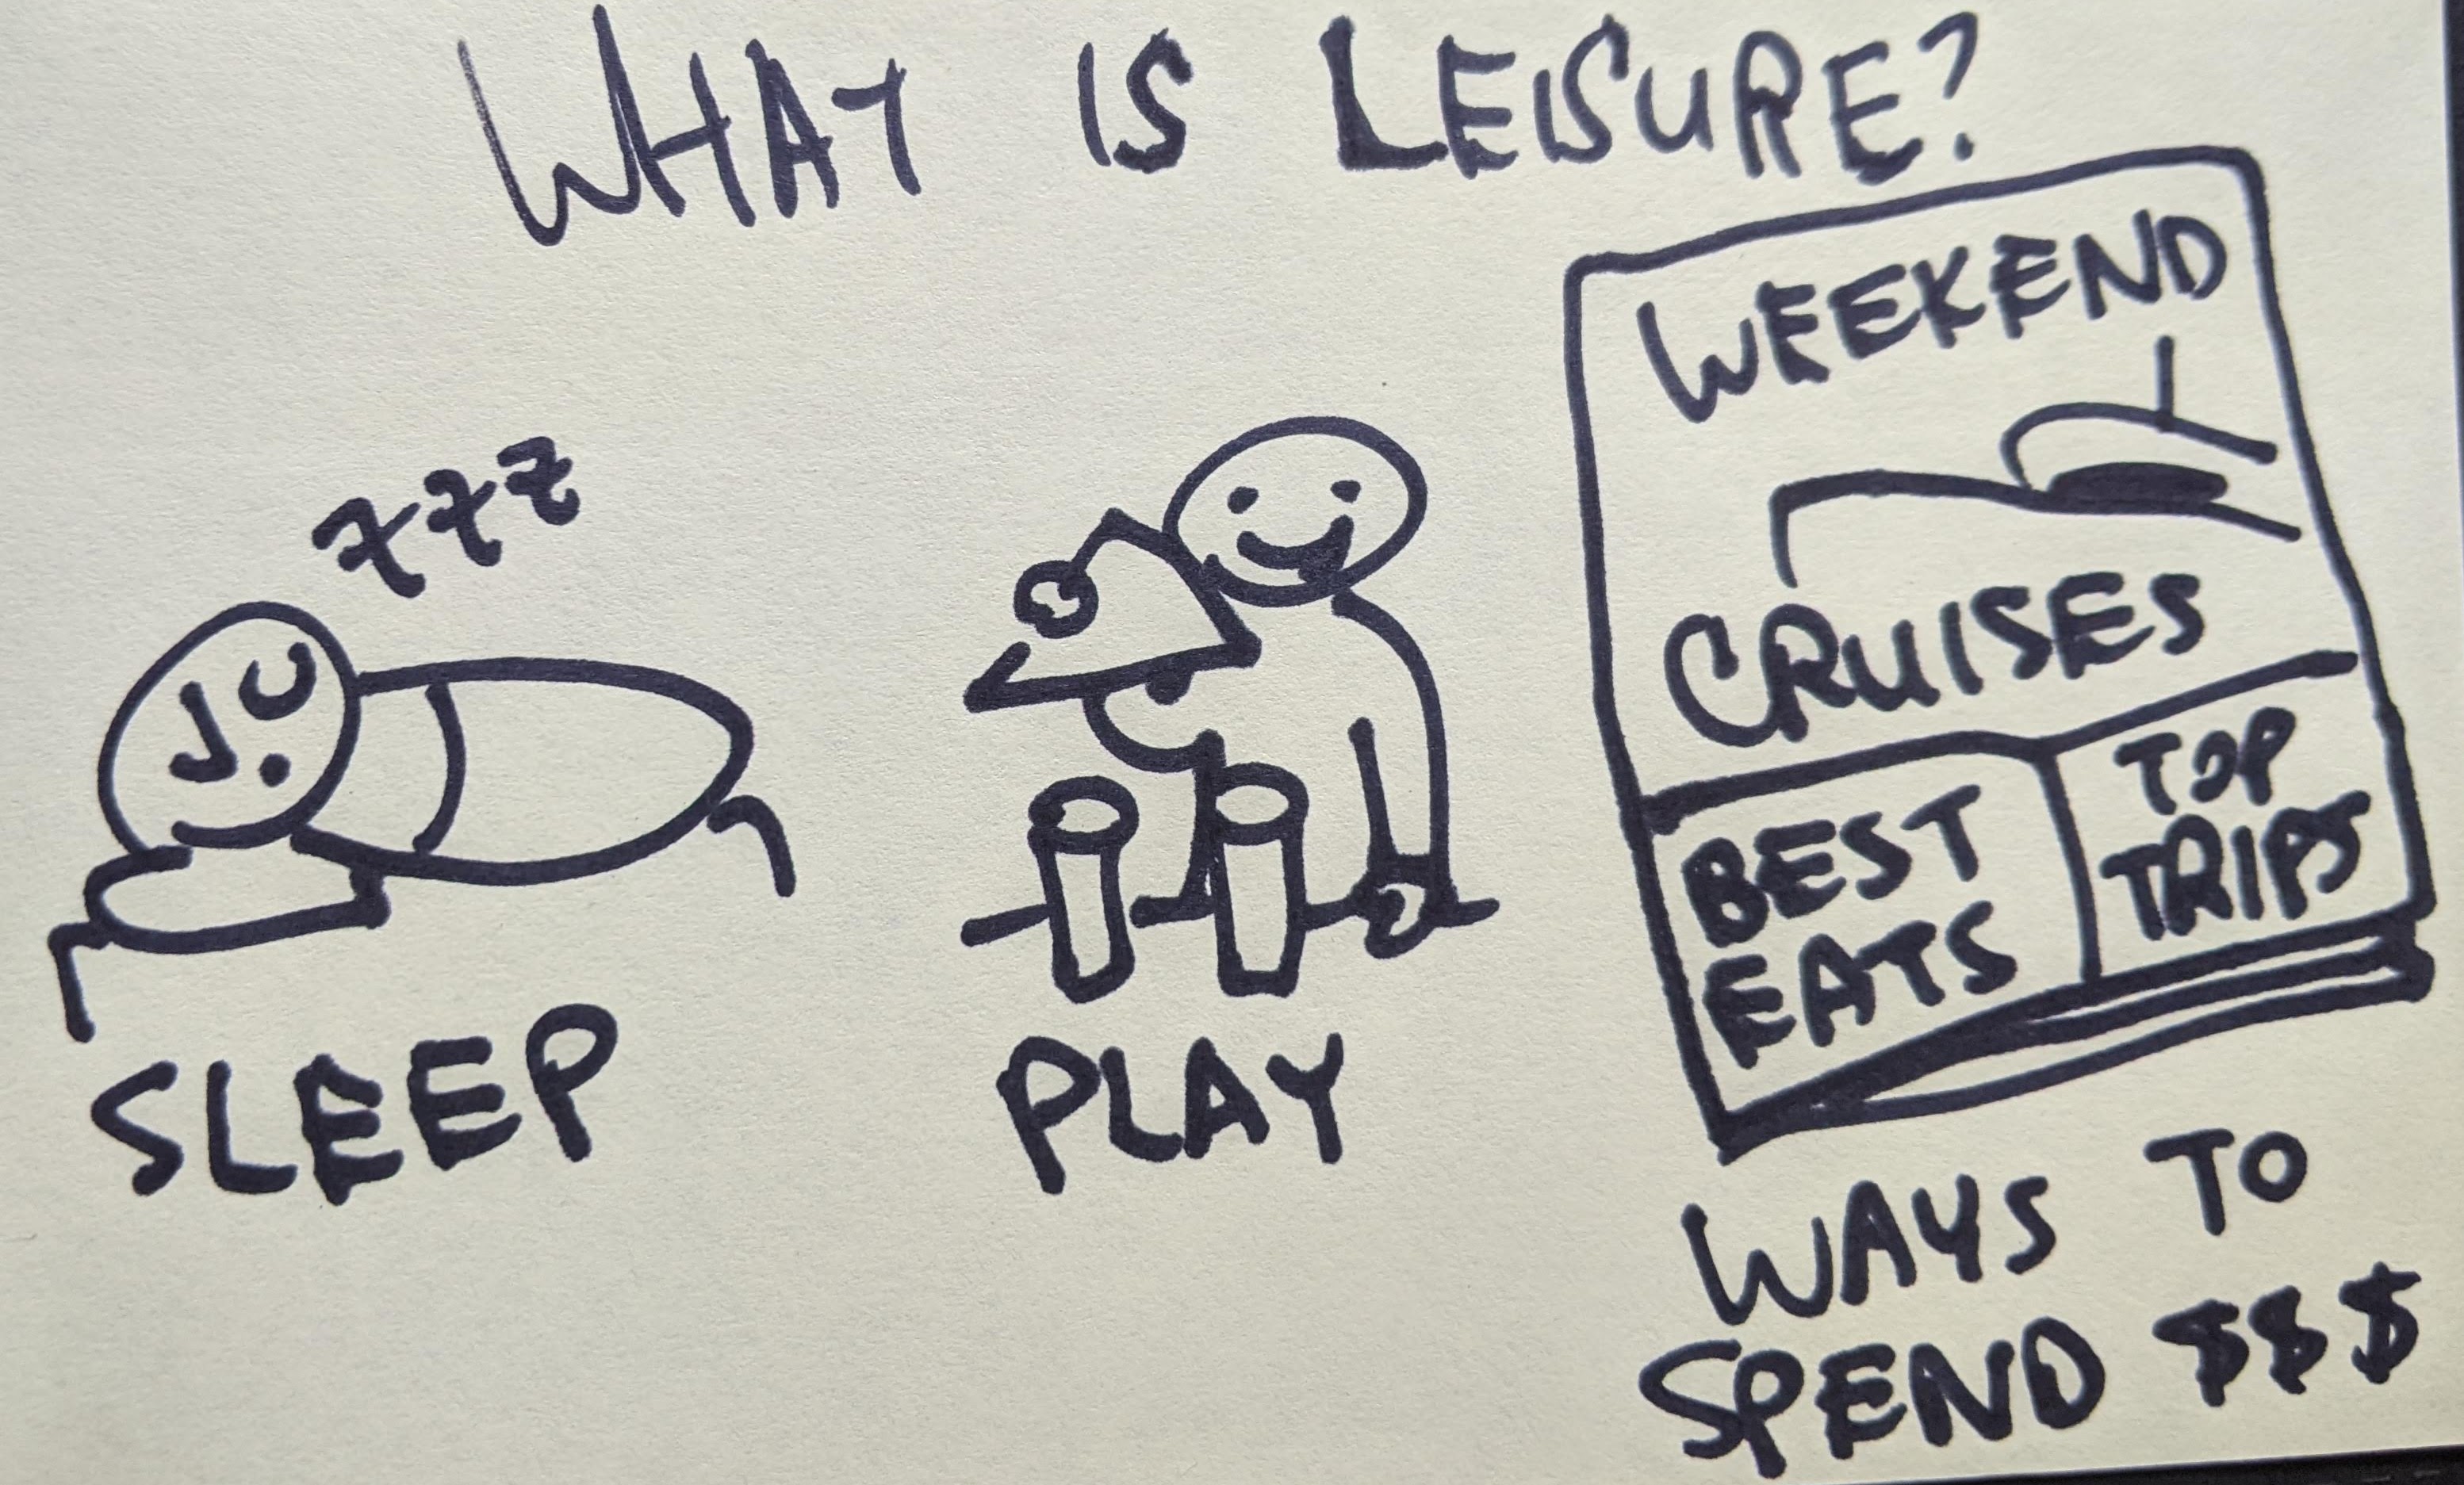 WHAT IS LEISURE?
zzz
SLEEP
PLAY
WEEKEND
CRUISES
BEST
EATS
TOP
TRIPS
WAYS TO
SPEND $$$